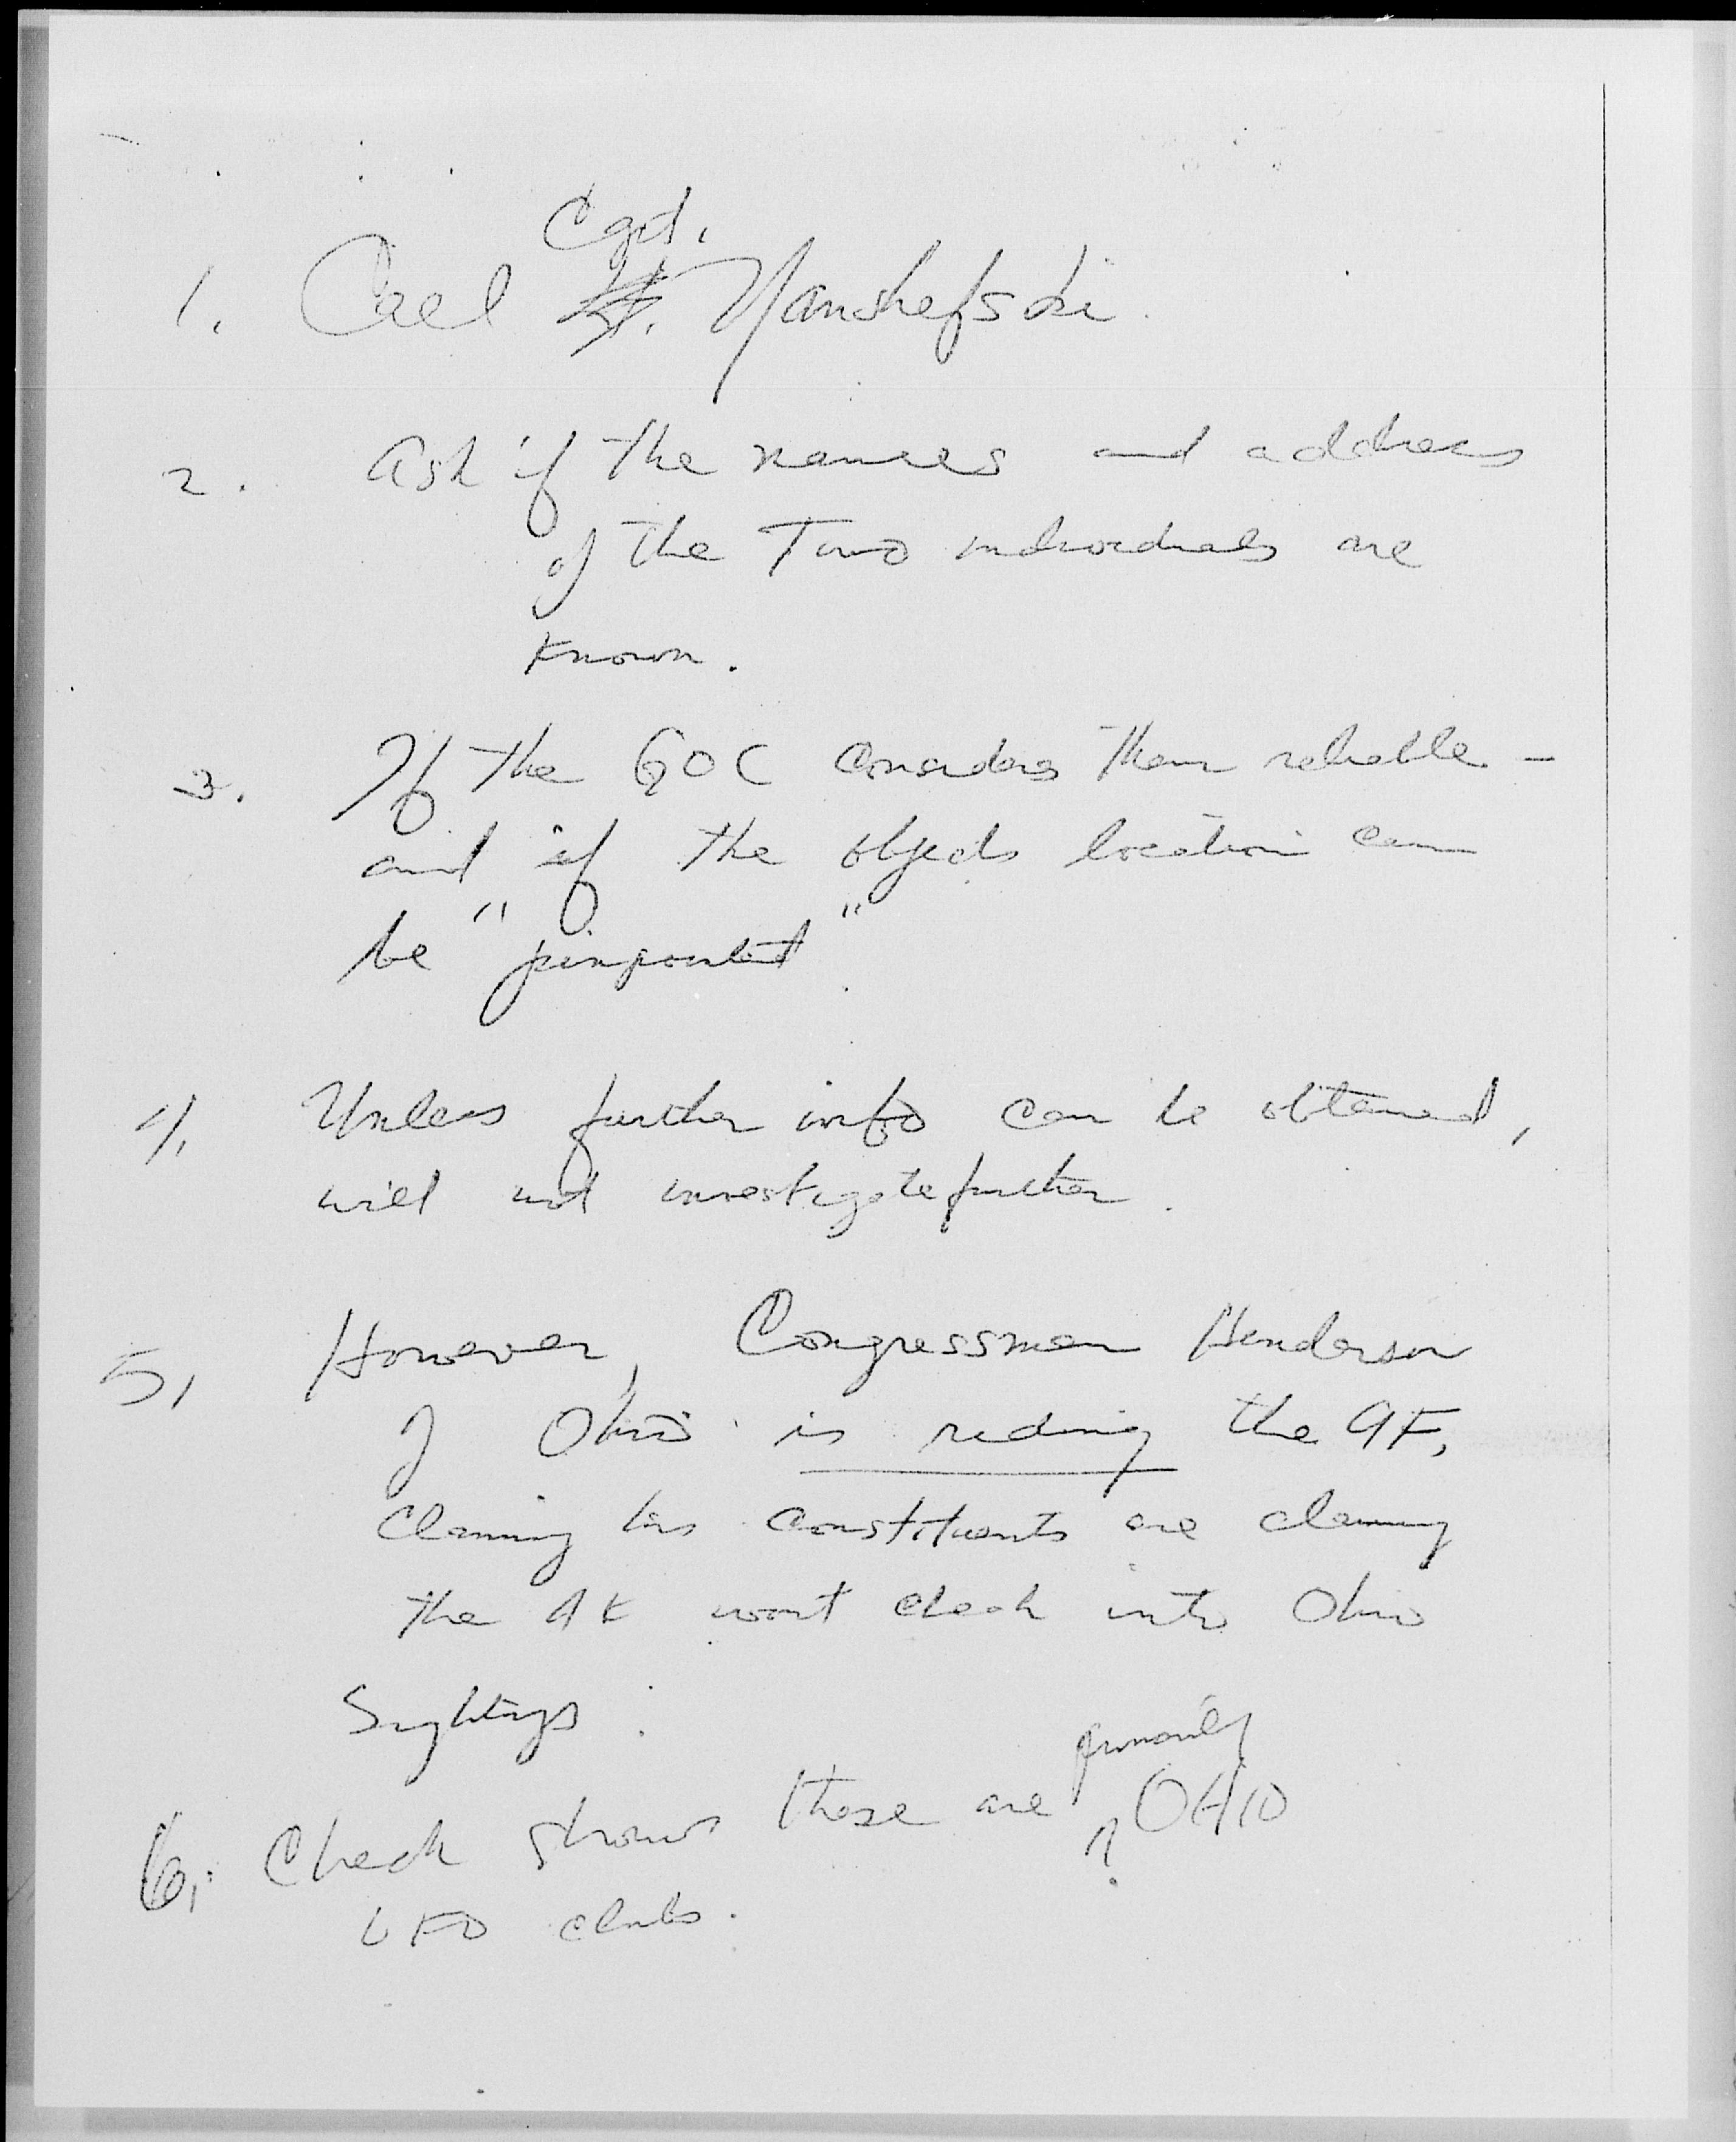 Capt.
1. Call Yanshefski.
2. Ask if the names and address
of the Two individuals are
known.
3. If the GOC considers them reliable -
and if the objects location can
be "pinpointed".
4. Unless further info can be obtained,
will not investigate further.
5. However, Congressman Henderson
of Ohio is riding the AF,
claiming his constituents are claiming
the AF wont check into Ohio
Sightings.
primarily
6. Check shows these are OHIO
UFO clubs.